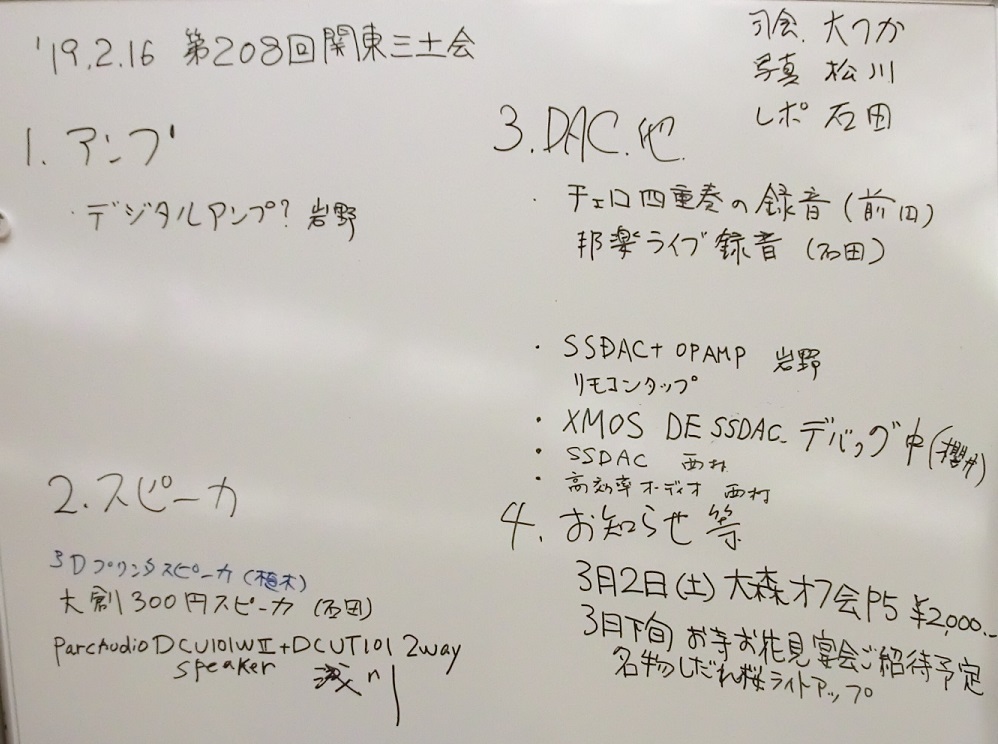 '19.2.16 第208回関東三土会
司会 大つか
写真 松川
レポ 石田
1. アンプ
・デジタルアンプ? 岩野
2. スピーカ
3Dプリンタスピーカ (植木)
大創300円スピーカ (石田)
ParcAudio DCU101WⅡ+DCUT101 2way
speaker 浅川
3. DAC.他.
・チェロ四重奏の録音 (前田)
邦楽ライブ録音 (石田)
・SSDAC+ OPAMP 岩野
リモコンタップ
・XMOS DE SSDAC デバッグ中 (櫻井)
・SSDAC 西村
・高効率オーディオ 西村
4. お知らせ等
3月2日(土) 大森オフ会 P5 ¥2,000.-
3月下旬 お寺お花見宴会ご招待予定
名物しだれ桜ライトアップ